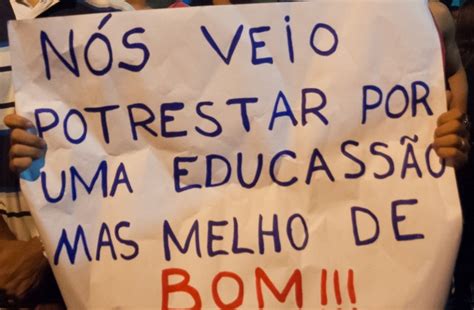 NÓS VEIO
POTRESTAR POR
UMA EDUCASSÃO
MAS MELHO DE
BOM!!!